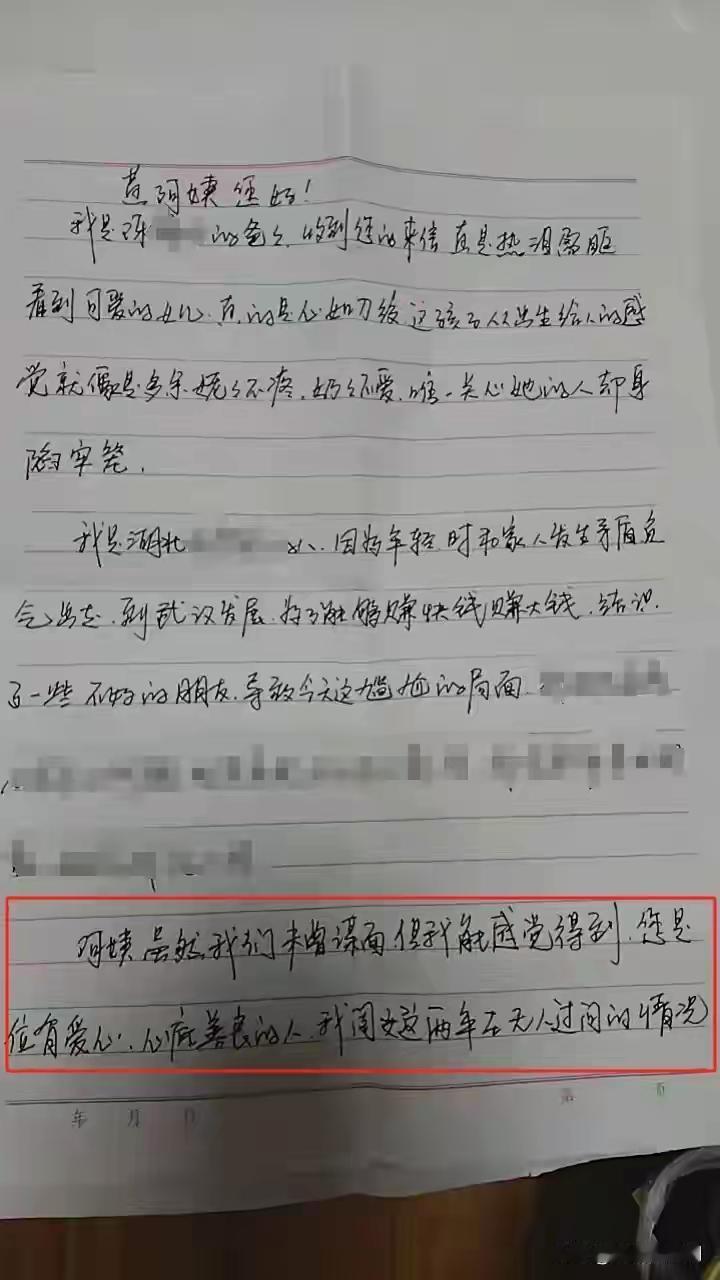 黄阿姨您好!
我是陈 的爸爸,收到您的来信真是热泪盈眶
看到可爱的女儿.真的是心如刀绞这孩子从出生给人的感
觉就像是多余.妈妈不疼.奶奶不爱.唯一关心她的人却身
陷牢笼.
我是湖北 人.因为年轻时和家人发生矛盾负
气出走.到武汉发展.为了能够赚快钱赚大钱.结识
了一些不好的朋友.导致今天这尴尬的局面.
阿姨虽然我们未曾谋面但我能感觉得到.您是
位有爱心.心底善良的人.我闺女这两年在无人过问的情况
年 月 日
第 页